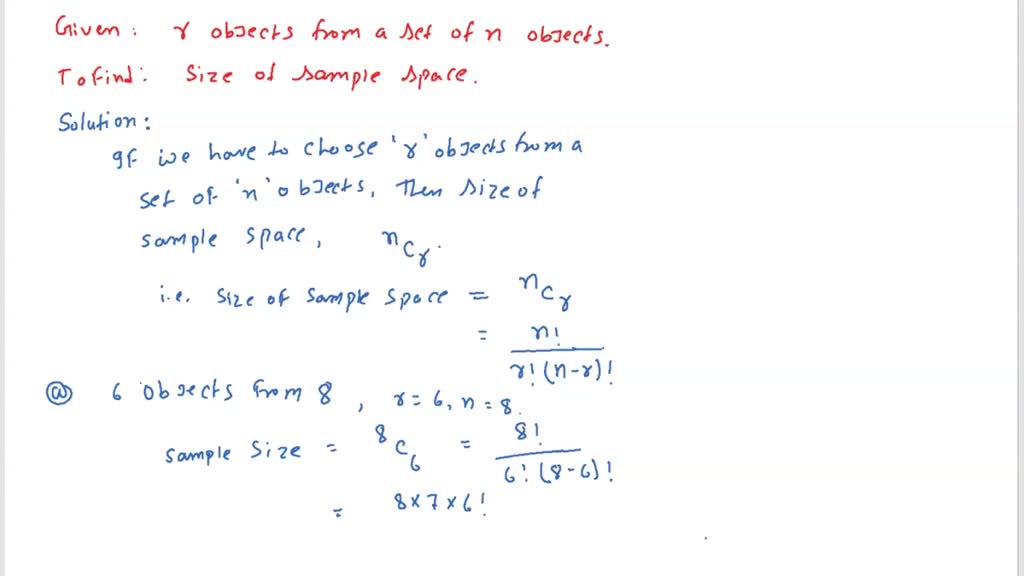 Given: r objects from a set of n objects.
To Find: Size of sample space.
Solution:
If we have to choose 'r' objects from a
set of 'n' objects, then size of
sample space, nCr.
i.e. size of sample space = nCr
= n! / r!(n-r)!
(a) 6 objects from 8, r = 6, n = 8.
sample size = 8C6 = 8! / 6!(8-6)!
= 8×7×6!